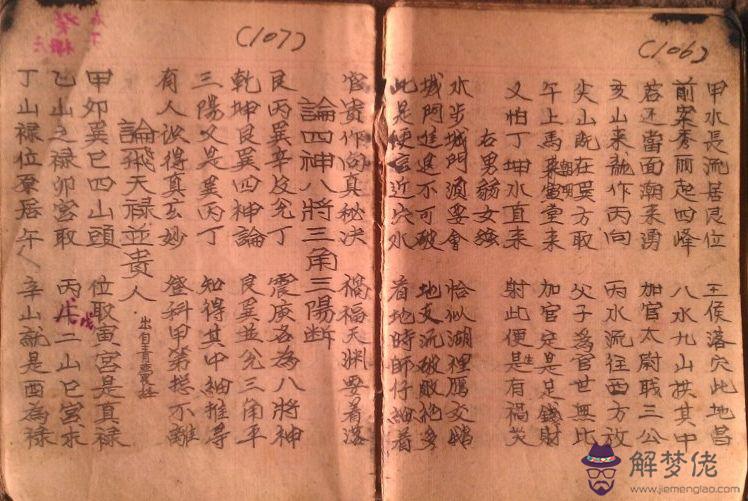 (106)
甲水長流居艮位 王侯落穴此地昌
前案秀麗起四峰 八水九山拱其中
若还當面潮来湧 加官太尉职三公
亥山来龍作丙向 丙水流往西方放
尖山既在巽方取 父子為官世無比
午上馬 寅堂来 加官定是足錢財
又怕丁坤水直来 射此便是有禍災
右男 女強
水步城門須要會 恰似湖裡鴈交
城門進退不可破 地支流破敗 多
此是便言近穴水 看地時師仔細看
(107)
官贵作向真秘决 禍福天渊要着落
論四神八將三角三陽断
艮丙巽辛及兌丁 震庚名為八將神
乾坤艮巽四神論 艮巽並兌三角平
三陽又是巽丙丁 知得其中細推尋
有人 得真玄妙 登科甲第总不離
論飛天禄並貴人 出自青囊经
甲如巽巳四山頭 位取寅宮是真禄
乙山之禄卯宮取 丙戊二山巳宮求
丁山禄位原居午 辛山就是酉為禄
解梦佬
www.jiemenglao.com